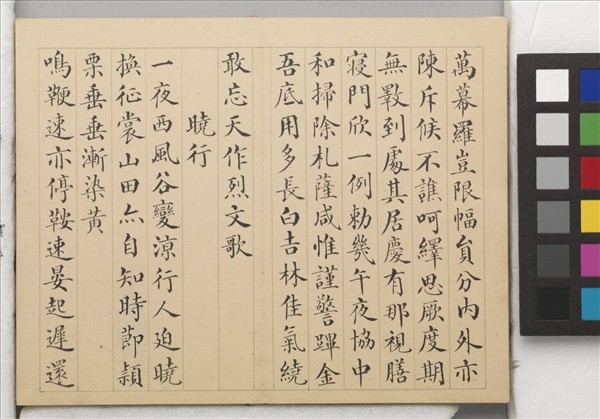 萬幕羅豈限幅員分内外亦
陳斥候不譙呵繹思厥度期
無斁到處其居慶有那視膳
寢門欣一例勅幾午夜協中
和掃除札薩咸惟謹警蹕金
吾底用多長白吉林佳氣繞
敢忘天作烈文歌
曉行
一夜西風谷變涼行人迫曉
換征裳山田亦自知時節穎
栗垂垂漸染黃
鳴鞭速亦停鞍速晏起遲還